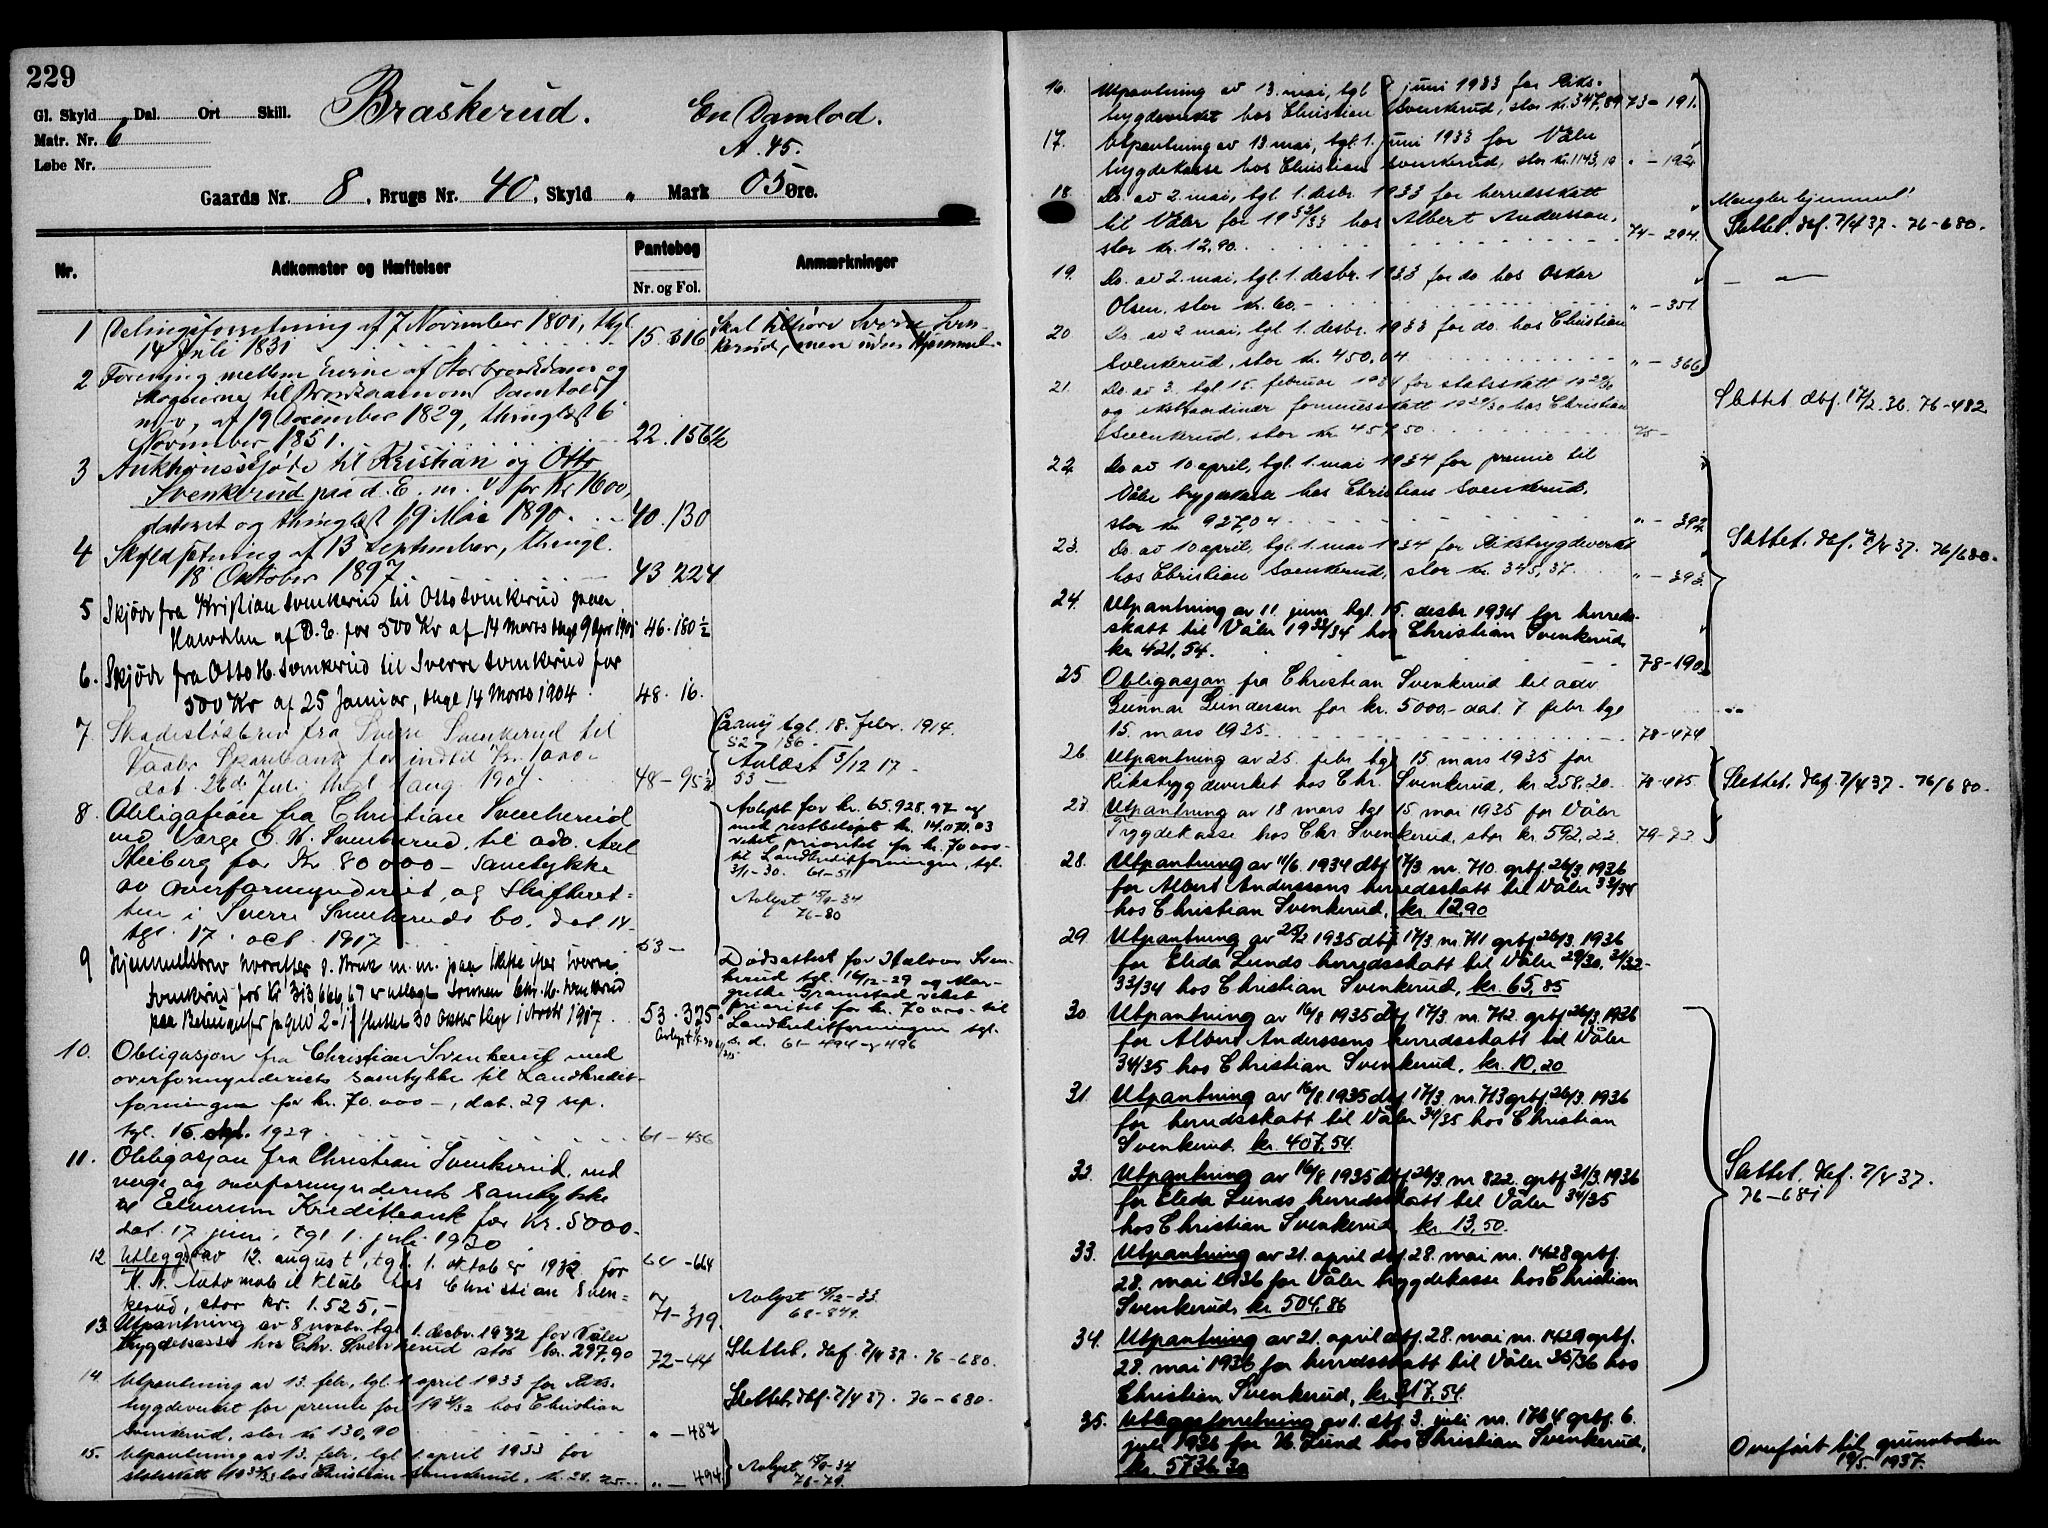 229
Gl. Skyld Dal. Ort Skill.
Braskerud. En Damlod.
Matr. Nr. 6
A. 45.
Løbe Nr.
Gaards Nr. 8, Brugs Nr. 40, Skyld " Mark 05 Øre.
Nr. Adkomster og Hæftelser Pantebog Anmærkninger
Nr. og Fol.
1 Delingsforretning af 7 November 1801, thgl.
14 Juli 1831 15. 316
Skal tilhøre Sverre Sven-
kerud, men uden Hjemmel.
2 Forening mellem Eierne af Storbronkdam og
til om Damhold
m. v, af 19 December 1829, thinglæst 6
November 1851. 22. 156 1/2
3 Auktionsskjøde til Kristian og Otto
Svenkerud paa d. E. m. v for Kr 1600,
dateret og thinglæst 19 Mai 1890. 40. 130
4 Skyldsetning af 13 September, thingl.
18 Oktober 1897 43 224
5 Skjøde fra Kristian Svenkerud til Otto Svenkerud paa
Halvdelen af D. E. for 500 Kr af 14 Marts thgl 9 Apr 1901 46. 180 1/2
6. Skjøde fra Otto H. Svenkerud til Sverre Svenkerud for
500 Kr af 25 Januar, thgl 14 Marts 1904. 48. 16.
7. Skadesløsbrev fra Sverre Svenkerud til
Vaaler Sparebank for indtil Kr. 1000-
dat. 26de Juli, thgl aug 1904. 48-95 1/2
tgl. 18. Febr. 1914.
52-186.
Avlæst 5/12 17 -
53 -
8. Obligation fra Christian Svenkerud
med Værge O. H. Svenkerud, til adv. Axel
Meiberg for Kr 80000- samtykke
av overformynderiet, og Skifteret-
ten i Sverre Svenkeruds bo. dat 14-
tgl. 17. oct. 1917 53 -
Avlyst for kr. 65.928.97 og
med restbeløpet kr. 14.071.03
veket prioritet for kr. 70000-
til Landkreditforeningen, tgl.
3/1-30. 61-51
Avlyst 15/9-34
76-80
9 Hjemmelsbrev hvorefter d. Bruk m. m. paa Skifte efter Sverre
Svenkerud for Kr 313,666,67 er utlagt Sønnen Chr. H. Svenkerud
paa 53. 325
Dødsattest for Halvor Sven-
kerud tgl. 16/12-29 og Mar-
grethe Gramstad veket
prioritet for kr. 70000- til
Landkreditforeningen tgl.
s. d. 61-494 & 496
10. Obligasjon fra Christian Svenkerud med
overformynderiets samtykke til Landkredit-
foreningen for kr. 70.000-, dat. 29 sep.
tgl. 16. 1929. 61-456
11. Obligasjon fra Christian Svenkerud, med
verge og overformynderiets samtykke
til Elverum Kreditbank for Kr. 5000.
dat. 17 juni, tgl 1. juli 1930 64-664
12. Utlegg av 12. august, tgl. 1. oktober 1932 for
K. N. Automobil Klub hos Christian Sven-
kerud, stor kr. 1.525,- 71-319
Avlyst 15/12-33.
68-849.
13. Utpantning av 8 novbr. tgl 1. desbr. 1932 for Våler
trygdekasse hos Chr. Svenkerud stor kr. 297,90 72-44
Slettet. Def. 7/4 37. 76-680.
14. Utpantning av 13. febr, tgl. 1 april 1933 for Riks-
trygdeverket for premie for 1931/32 hos Christian
Svenkerud, stor kr 130,90 " - 487
Slettet. Def. 7/4 37. 76-680.
15. Utpantning av 13. febr, tgl. 1 april 1933 for
statsskatt 1932/33 hos Christian Svenkerud, kr. 38, " - 494
Avlyst 15/9-34
76-79.
16. Utpantning av 13. mai, tgl 1 juni 1933 for Riks-
trygdeverket hos Christian Svenkerud, stor kr. 347,89 73-191.
17. Utpantning av 13 mai, tgl. 1. juni 1933 for Våler
trygdekasse hos Christian Svenkerud, stor kr. 1143,10 " - 192
18. Do. av 2. mai, tgl. 1. desbr. 1933 for herredsskatt
til Våler for 1932/33 hos Albert Anderson,
stor kr. 12,90. 74-294.
Mangler hjemmel!
Slettet. Def. 7/4 37. 76-680.
19. Do. av 2. mai, tgl. 1. desbr. 1933 for do hos Oskar
Olsen, stor kr. 60.- " - 351
20 Do. av 2 mai, tgl. 1. desbr. 1933 for do. hos Christian
Svenkerud, stor kr. 450,04 " - 366
21. Do. av 3. tgl. 15. februar 1934 for statsskatt 1929/30
og ekstraordinær formuesskatt 1929/30 hos Christian
Svenkerud, stor kr. 457,50 75-
Slettet dbf. 17/2. 36. 76-482
22. Do. av 10 april, tgl. 1. mai 1934 for premie til
Våler trygdekasse hos Christian Svenkerud,
stor kr. 927,04 " - 392
23. Do. av 10 april, tgl. 1. mai 1934 for Rikstrygdeverket
hos Christian Svenkerud, stor kr. 345,37. " - 393
Slettet. Def. 7/4 37. 76/680.
24. Utpantning av 11. juni tgl. 15. desbr 1934 for herreds-
skatt til Våler 1933/34 hos Christian Svenkerud,
kr. 421,54. 78-190
25 Obligasjon fra Christian Svenkerud til adv
Gunnar Gundersen for kr. 5000.- dat. 7 febr tgl
15. mars 1935. 78-474
26 Utpantning av 25. febr. tgl. 15 mars 1935 for
Rikstrygdeverket hos Chr. Svenkerud, kr. 258.20. 78-475.
Slettet. Def. 7/4 37. 76/680.
27. Utpantning av 18 mars tgl 15 mai 1935 for Våler
Trygdekasse hos Chr. Svenkerud, stor kr. 592,22 79-
28. Utpantning av 11/6. 1934 dbf. 17/3. nr. 710. grbf. 26/3. 1936
for Albert Anderssons herredsskatt til Våler 33/34
hos Christian Svenkerud, kr. 12,90
29 Utpantning av 25/2 1935 dbf 17/3. nr. 711 grbf. 26/3. 1936
for Elida Lunds herredsskatt til Våler 29/30, 31/32-
33/34 hos Christian Svenkerud, kr. 65,85
30 Utpantning av 16/8 1935 dbf. 17/3. nr. 712. grbf. 26/3. 1936
for Albert Anderssons herredsskatt til Våler
34/35 hos Christian Svenkerud, kr. 10,20
31. Utpantning av 16/8 1935 dbf. 17/3. nr. 713 grbf. 26/3. 1936
for herredsskatt til Våler 34/35 hos Christian
Svenkerud. kr. 407,54.
32. Utpantning av 16/8 1935 dbf. 26/3. nr 822. grbf. 31/3. 1936
for Elida Lunds herredsskatt til Våler 34/35
hos Christian Svenkerud kr. 13,50.
Slettet. Def. 7/4 37.
76-681
33. Utpantning av 21. april dbf. 28. mai nr. 1428 grbf.
28. mai 1936 for Våler trygdekasse hos Christian
Svenkerud, kr. 504,86
34. Utpantning av 21. april dbf. 28. mai nr. 1429 grbf.
28. mai 1936 for herredsskatt til Våler 35/36 hos
Christian Svenkerud, kr. 317,54.
35. Utleggsforretning av 1. dbf. 3. juli nr. 1764 grbf. 6.
juli 1936 for H. Lund hos Christian Svenkerud,
kr. 5736,30
Overført til grunnboken
19/5. 1937.